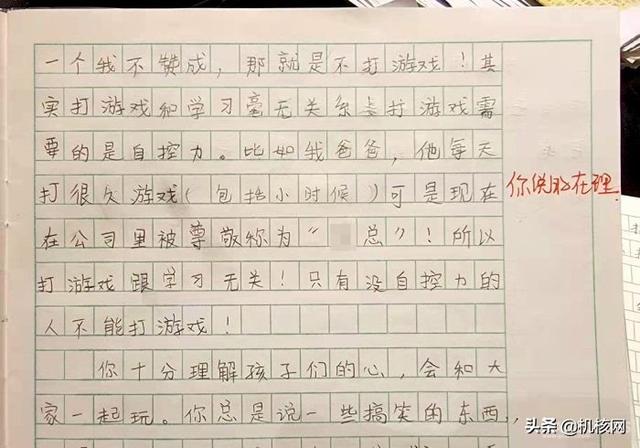 一个我不赞成，那就是不打游戏！其
实打游戏和学习毫无关系。打游戏需
要的是自控力。比如我爸爸，他每天
打很久游戏（包括小时候）可是现在
你说的在理
在公司里被尊敬称为“总”！所以
打游戏跟学习无关！只有没自控力的
人不能打游戏！
你十分理解孩子们的心，会和大
家一起玩。你总是说一些搞笑的东西，
头条@机核网